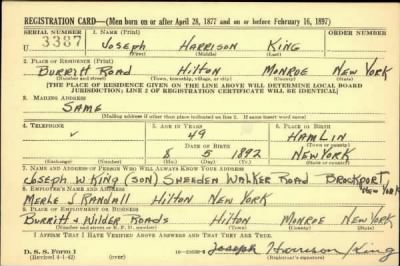 REGISTRATION CARD—(Men born on or after April 28, 1877 and on or before February 16, 1897)
SERIAL NUMBER 1. NAME (Print) ORDER NUMBER
3387 JOSEPH HARRISON KING
(First) (Middle) (Last)
2. PLACE OF RESIDENCE (Print)
BURRITT ROAD HILTON MONROE NEW YORK
(Number and street) (Town, township, village, or city) (County) (State)
[THE PLACE OF RESIDENCE GIVEN ON THE LINE ABOVE WILL DETERMINE LOCAL BOARD
JURISDICTION; LINE 2 OF REGISTRATION CERTIFICATE WILL BE IDENTICAL]
3. MAILING ADDRESS
SAME
(Mailing address if other than place indicated on line 2. If same insert word same)
4. TELEPHONE 5. AGE IN YEARS 6. PLACE OF BIRTH
49 HAMLIN
DATE OF BIRTH (Town or county)
8 5 1892 NEW YORK
(Exchange) (Number) (Mo.) (Day) (Yr.) (State or country)
7. NAME AND ADDRESS OF PERSON WHO WILL ALWAYS KNOW YOUR ADDRESS
JOSEPH W KING (SON) SWEEDEN WALKER ROAD BROCKPORT, NEW YORK
8. EMPLOYER'S NAME AND ADDRESS
MERLE J RANDALL HILTON NEW YORK
9. PLACE OF EMPLOYMENT OR BUSINESS
BURRITT & WILDER ROADS HILTON MONROE NEW YORK
(Number and street or R. F. D. number) (Town) (County) (State)
I AFFIRM THAT I HAVE VERIFIED ABOVE ANSWERS AND THAT THEY ARE TRUE.
D. S. S. Form 1
(Revised 4-1-42) (over) Joseph Harrison King
(Registrant's signature)